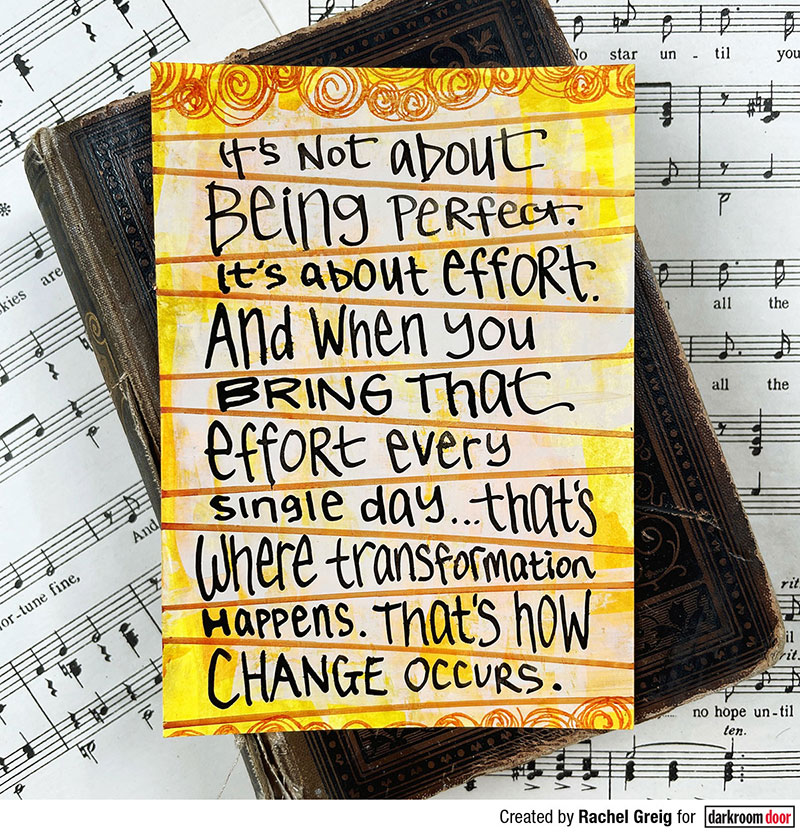 It's Not about
Being Perfect.
It's about effort.
And when you
BRING That
effort every
single day...that's
where transformation
Happens. That's how
CHANGE OCCURS.
No star un - til you
kies are
all the
all the
And
or-tune fine,
rit
il
rit.
no hope un-til
ten.
p
p
p
Created by Rachel Greig for darkroom door